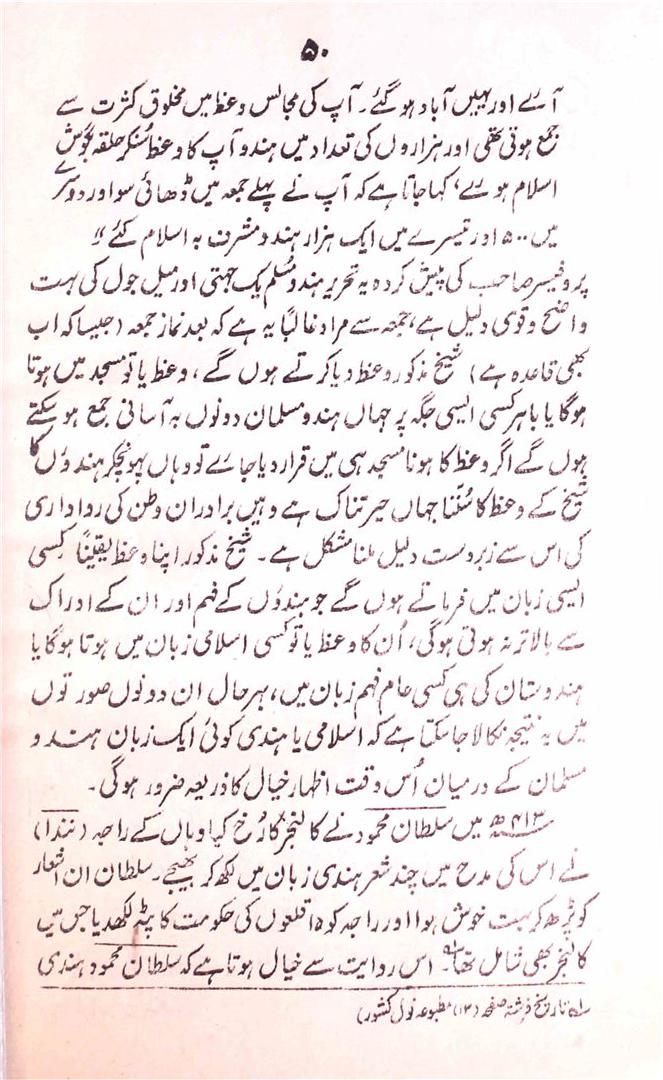 ۵۰
آئے اور یہیں آباد ہو گئے۔ آپ کی مجالس وعظ میں مخلوق کثرت سے
جمع ہوتی تھی اور ہزاروں کی تعداد میں ہندو آپ کا وعظ سُنکر حلقہ بگوش
اسلام ہوئے، کہا جاتا ہے کہ آپ نے پہلے جمعہ میں ڈھائی سو اور دوسرے
میں ۵۰۰ اور تیسرے میں ایک ہزار ہندو مشرف بہ اسلام کئے"
پروفیسر صاحب کی پیش کردہ یہ تحریر ہندو مُسلم یک جہتی اور میل جول کی بہت
واضح و قوی دلیل ہے، جمعہ سے مراد غالباً یہ ہے کہ بعد نماز جمعہ (جیسا کہ اب
بھی قاعدہ ہے) شیخ مذکور وعظ دیا کرتے ہوں گے، وعظ یا تو مسجد میں ہوتا
ہوگا یا باہر کسی ایسی جگہ پر جہاں ہندو مسلمان دونوں بہ آسانی جمع ہو سکتے
ہوں گے اگر وعظ کا ہونا مسجد ہی میں قرار دیا جائے تو وہاں پہونچکر ہندوؤں کا
شیخ کے وعظ کا سُننا جہاں حیرتناک ہے وہیں برادران وطن کی رواداری
کی اس سے زبردست دلیل ملنا مشکل ہے۔ شیخ مذکور اپنا وعظ یقیناً کسی
ایسی زبان میں فرماتے ہوں گے جو ہندوؤں کے فہم اور ان کے ادراک
سے بالاتر نہ ہوتی ہوگی، اُن کا وعظ یا تو کسی اسلامی زبان میں ہوتا ہوگا یا
ہندوستان کی ہی کسی عام فہم زبان میں، بہر حال ان دونوں صورتوں
میں یہ نتیجہ نکالا جا سکتا ہے کہ اسلامی یا ہندی کوئی ایک زبان ہندو
مسلمان کے درمیان اُس وقت اظہار خیال کا ذریعہ ضرور ہوگی۔
۴۱۳ھ میں سلطان محمود نے کالنجر کا رُخ کیا وہاں کے راجہ (نندا)
نے اس کی مدح میں چند شعر ہندی زبان میں لکھ کر بھیجے۔ سلطان ان اشعار
کو پڑھ کر بہت خوش ہوا اور راجہ کو ۱۵ قلعوں کی حکومت کا پٹہ لکھدیا جس میں
کالنجر بھی شامل تھا۔ اس روایت سے خیال ہوتا ہے کہ سلطان محمود ہندی
تاریخ فرشتہ صفحہ (۱۳) مطبوعہ نول کشور)